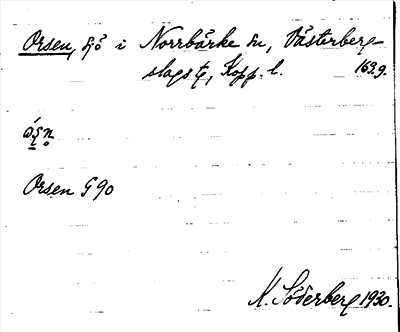 Orsen, sjö i Norrbärke sn, Västerberg-
slags tg, Kopp. l. 169.9.
Orsen G 90
K. Söderberg 1930.